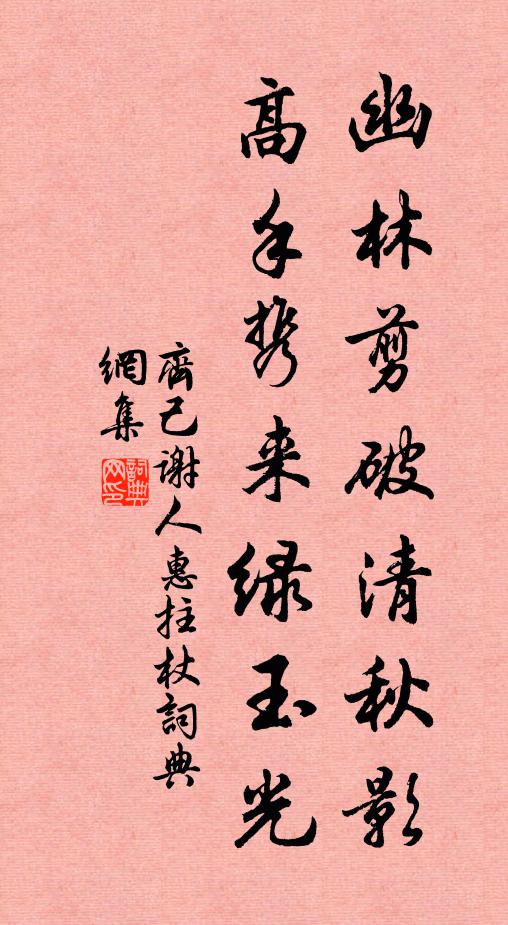 幽林剪破清秋影
高手携来绿玉光
齊己谢人惠拄杖詞典
網集
詞典
网印